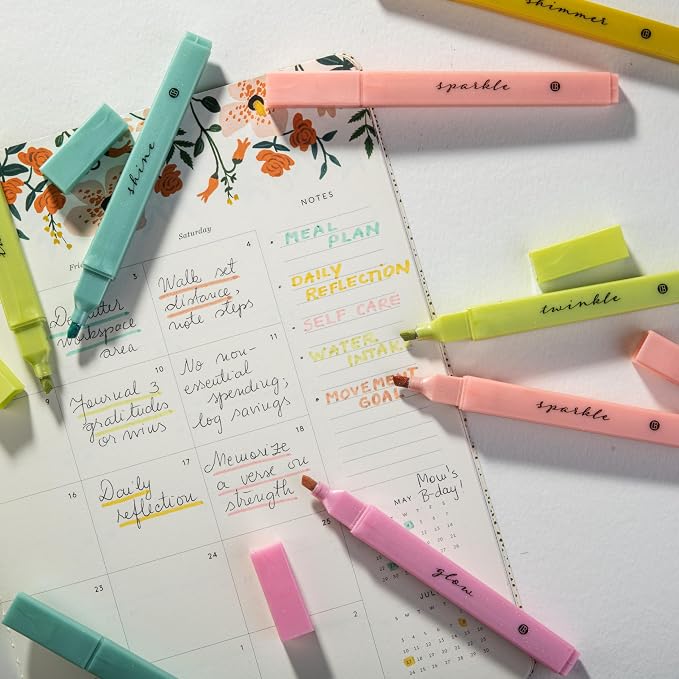 shimmer
sparkle
shine
NOTES
Saturday
3
4
MEAL
PLAN
DAILY
REFLECTION
SELF CARE
WATER
INTAKE
MOVEMENT
GOAL
Walk set
distance,
note steps
workspace
area
9
10
11
Journal 3
gratitudes
or wins
No non-
essential
spending;
log savings
twinkle
sparkle
16
17
18
Daily
reflection
Memorize
a verse on
strength
Mom's
B-day!
MAY
23
24
25
glow
1
2